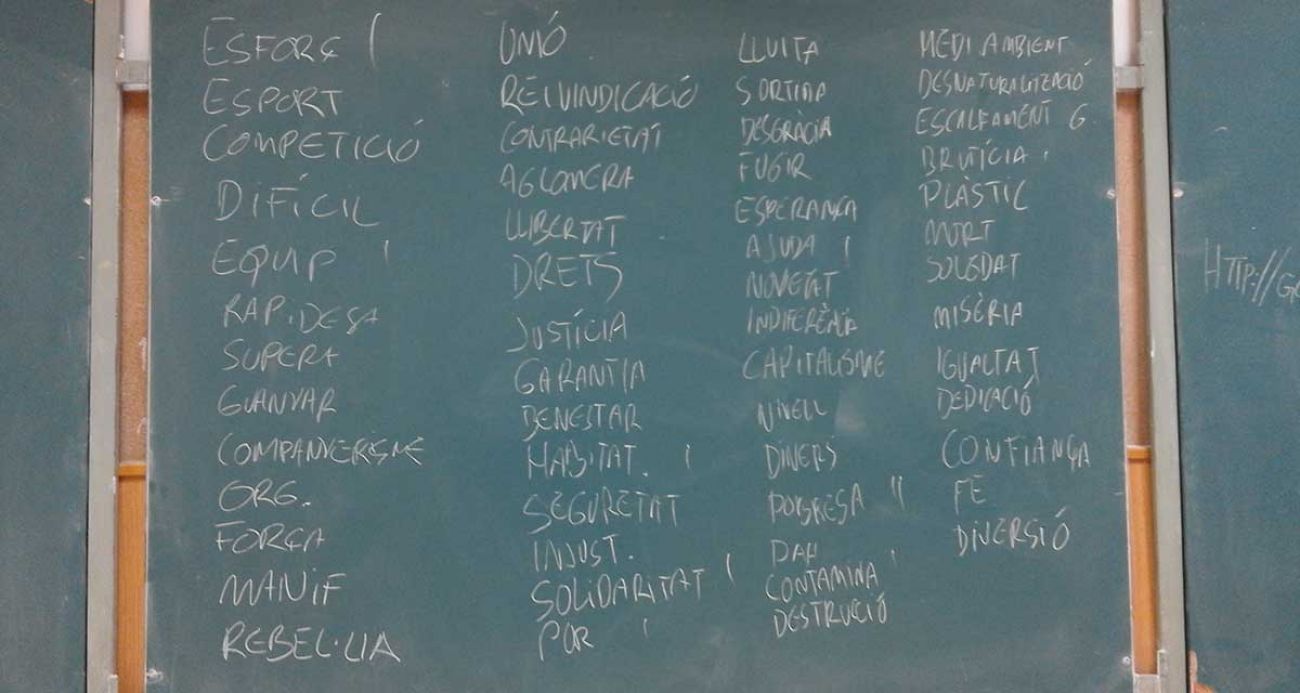 ESFORÇ |
ESPORT
COMPETICIÓ
DIFÍCIL
EQUIP |
RAPIDESA
SUPERA
GUANYAR
COMPANYERISME
ORG.
FORÇA
MANIF
REBEL·LIA
UNIÓ
REIVINDICACIÓ
CONTRARIETAT
AGLOMERA
LLIBERTAT
DRETS
JUSTÍCIA
GARANTIA
BENESTAR
HABITAT. |
SEGURETAT
INJUST.
SOLIDARITAT |
POR |
LLUITA
SORTIDA
DESGRÀCIA
FUGIR
ESPERANÇA
AJUDA |
NOVETAT
INDIFERÈNCIA
CAPITALISME
NIVELL
DINERS
POBRESA ||
CONTAMINA |
DESTRUCCIÓ
MEDI AMBIENT
DESNATURALITZACIÓ
ESCALFAMENT G.
BRUTÍCIA |
PLÀSTIC
MORT
SOLEDAT
MISÈRIA
IGUALTAT
DEDICACIÓ
CONFIANÇA
FE
DIVERSIÓ
HTTP://G